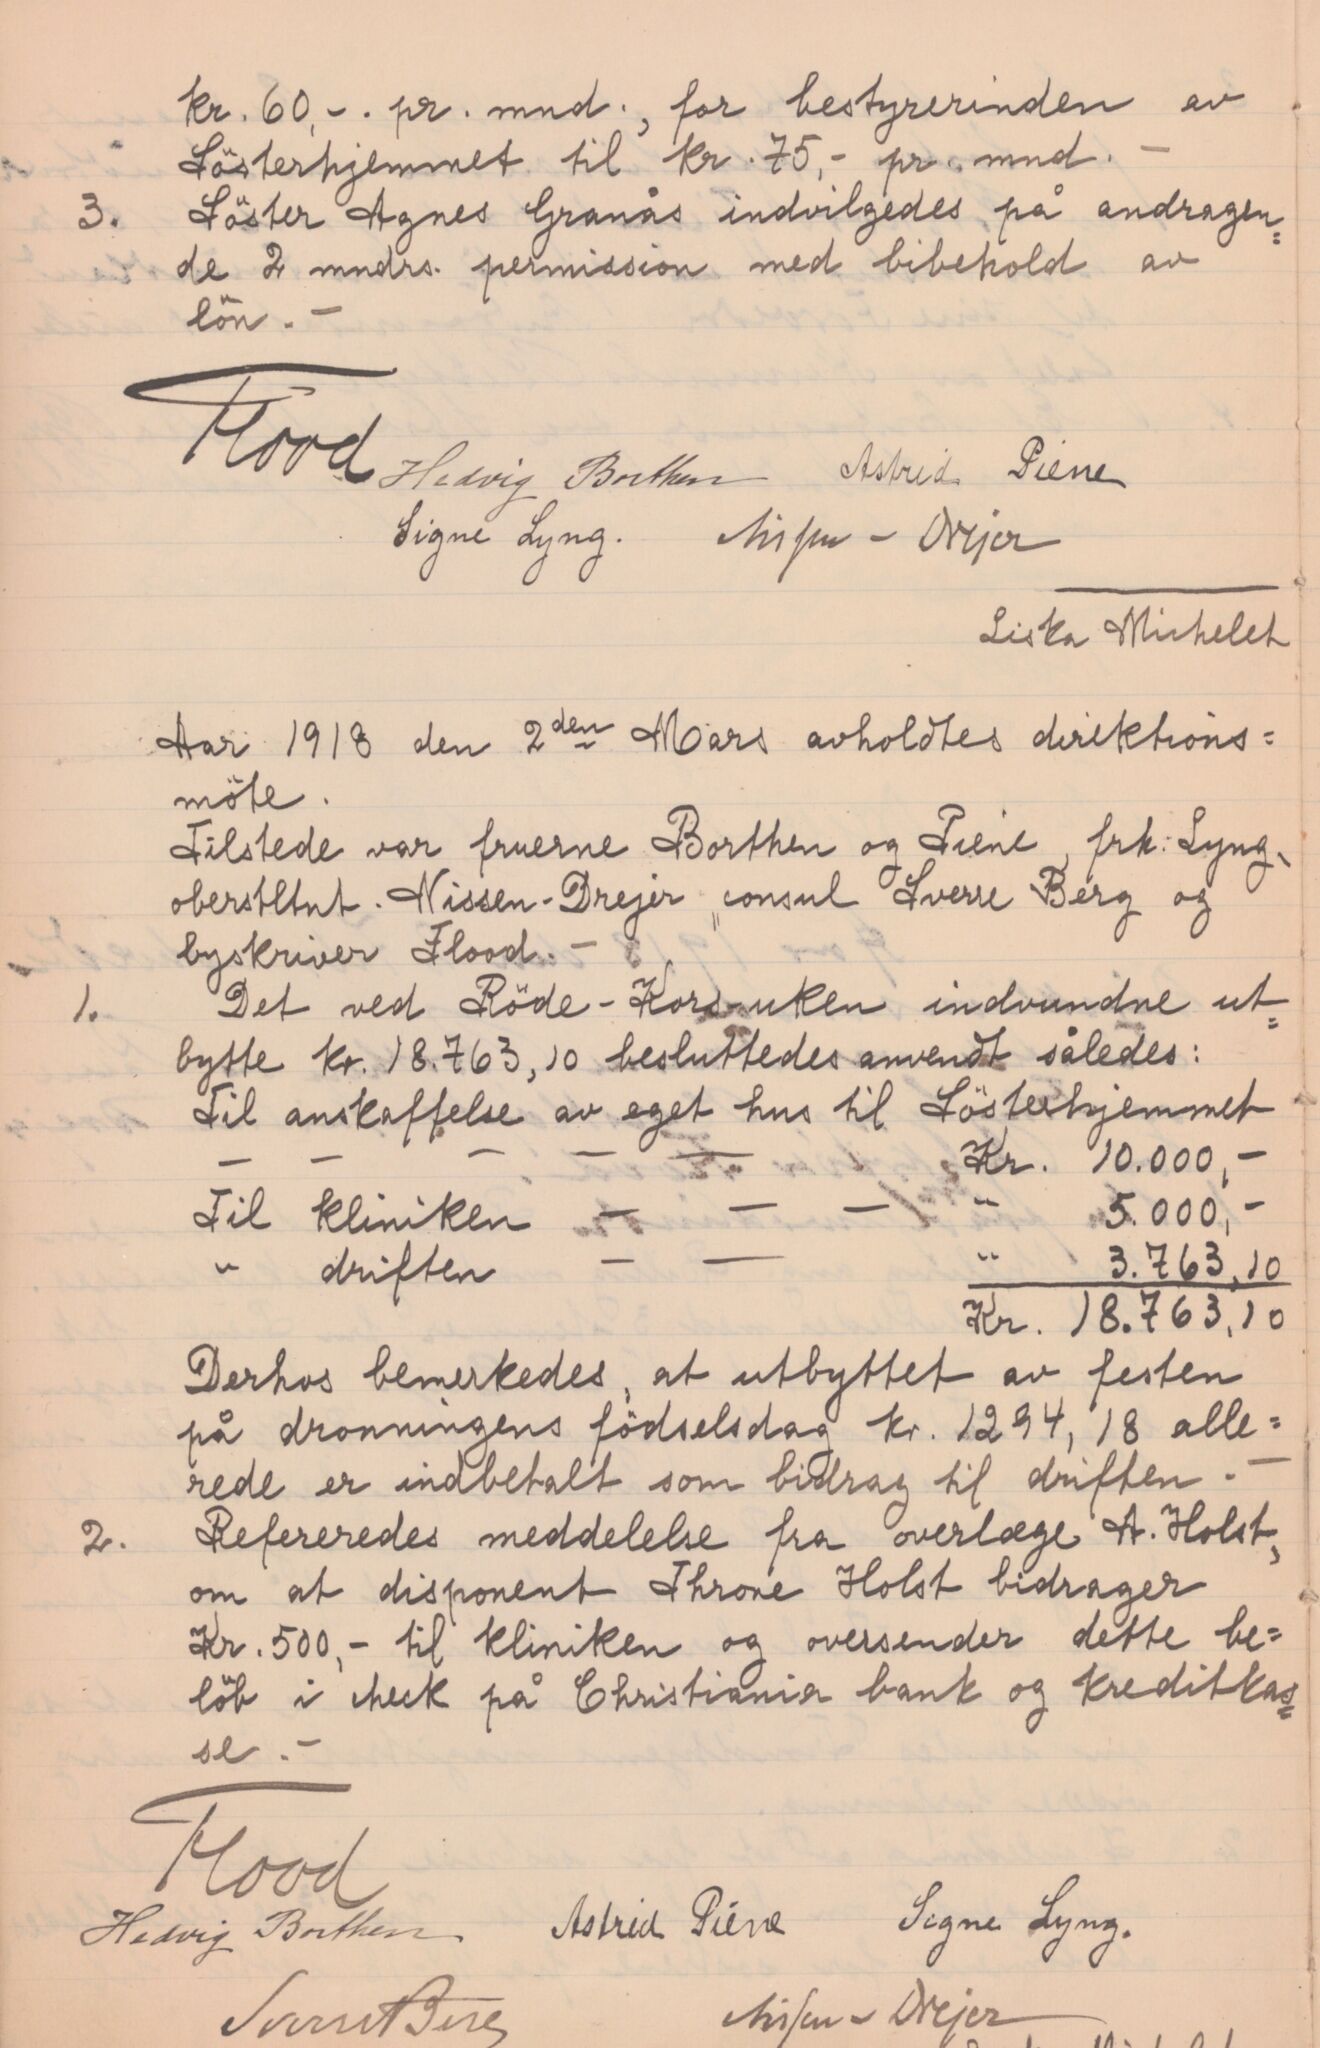 kr. 60,-. pr. mnd., for bestyrerinden av
Sösterhjemmet til kr. 75,- pr. mnd. -
3. Söster Agnes Granås indvilgedes på andragen=
de 2 mndrs. permission med bibehold av
lön. -
Flood
Hedvig Borthen Astrid Piene
Signe Lyng. Nissen - Drejer
Liska Michelet
Aar 1918 den 2den Mars avholdtes direktions=
möte.
Tilstede var fruerne Borthen og Piene, frk: Lyng,
oberstltnt. Nissen-Drejer, consul Sverre Berg og
byskriver Flood. -
1. Det ved Röde-Kors-uken indvundne ut=
bytte kr. 18.763,10 besluttedes anvendt således:
Til anskaffelse av eget hus til Sösterhjemmet
— — — — — Kr. 10.000,-
Til kliniken — — — " 5.000,-
" driften — — " 3.763,10
Kr. 18.763,10
Derhos bemerkedes, at utbyttet av festen
på dronningens födselsdag kr. 1294,18 alle=
rede er indbetalt som bidrag til driften. -
2. Refereredes meddelelse fra overlæge A. Holst,
om at disponent Throne Holst bidrager
Kr. 500,- til kliniken og oversender dette be=
löb i check på Christiania bank og kreditkas=
se. -
Flood
Hedvig Borthen Astrid Piene Signe Lyng.
Sverre Berg Nissen - Drejer